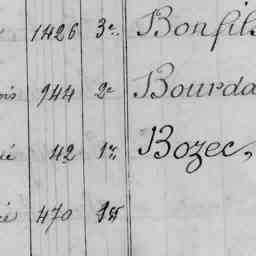 1426 3e. Bonfils
944 2e Bourda
42 1r. Bozec,
470 1er